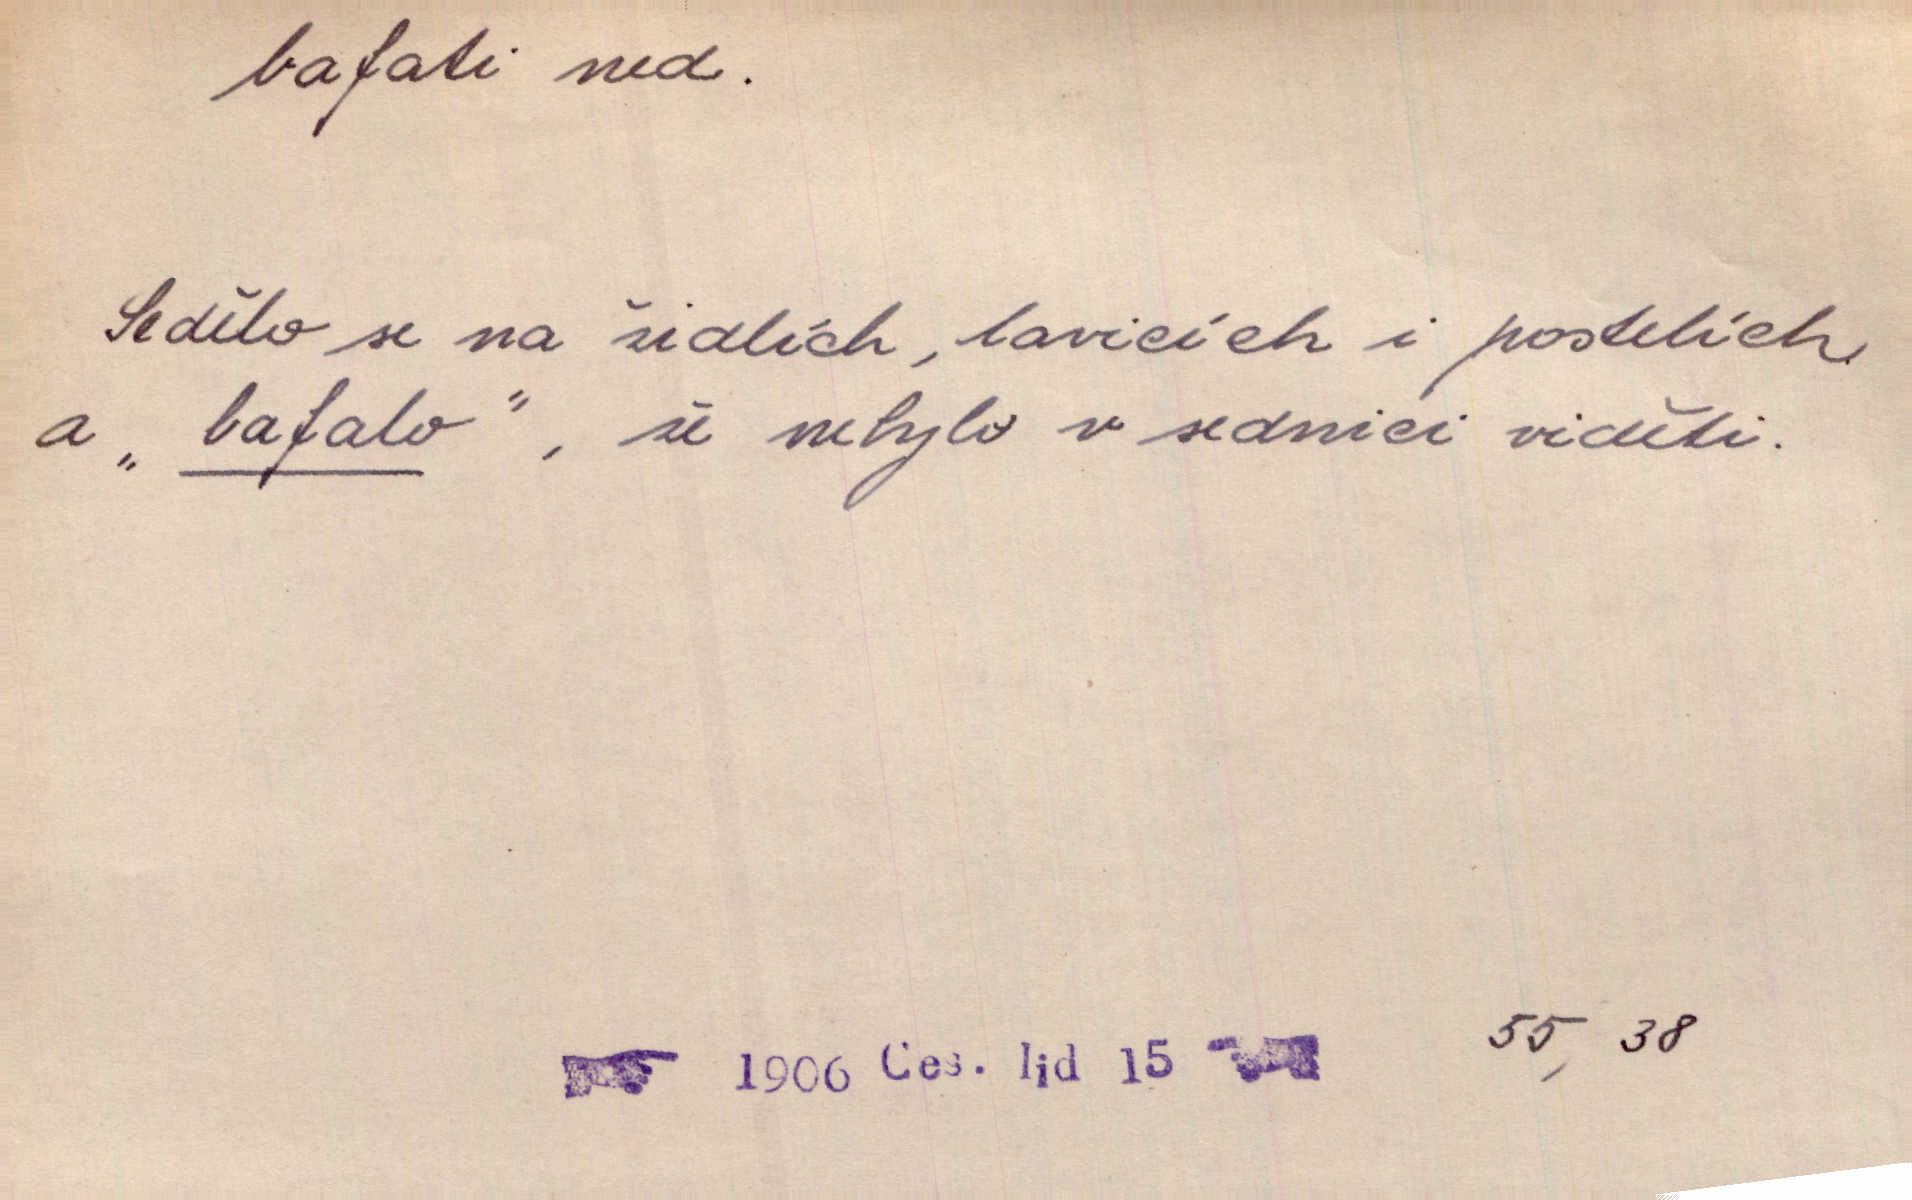 bafati ned.
Sedělo se na židlích, lavicích i postelích
a „bafalo", že nebylo v sednici viděti.
1906 Čes. lid 15 55, 38